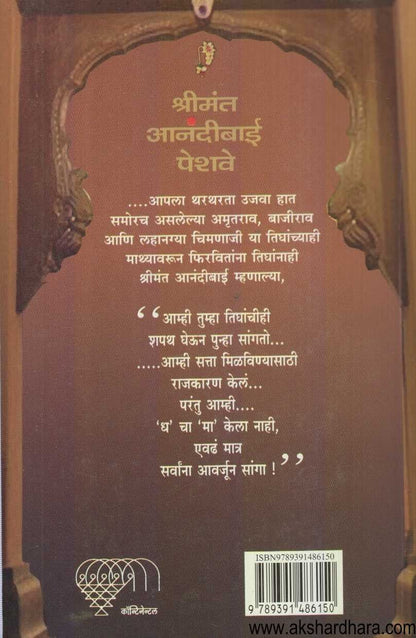 श्रीमंत
आनंदीबाई
पेशवे
....आपला थरथरता उजवा हात
समोरच असलेल्या अमृतराव, बाजीराव
आणि लहानग्या चिमणाजी या तिघांच्याही
माथ्यावरून फिरवितांना तिघांनाही
श्रीमंत आनंदीबाई म्हणाल्या,
“आम्ही तुम्हा तिघांचीही
शपथ घेऊन पुन्हा सांगतो...
.....आम्ही सत्ता मिळविण्यासाठी
राजकारण केलं...
परंतु आम्ही....
‘ध’ चा ‘मा’ केला नाही,
एवढं मात्र
सर्वांना आवर्जून सांगा !”
कॉन्टिनेन्टल
ISBN9789391486150
9 789391 486150
www.akshardhara.com